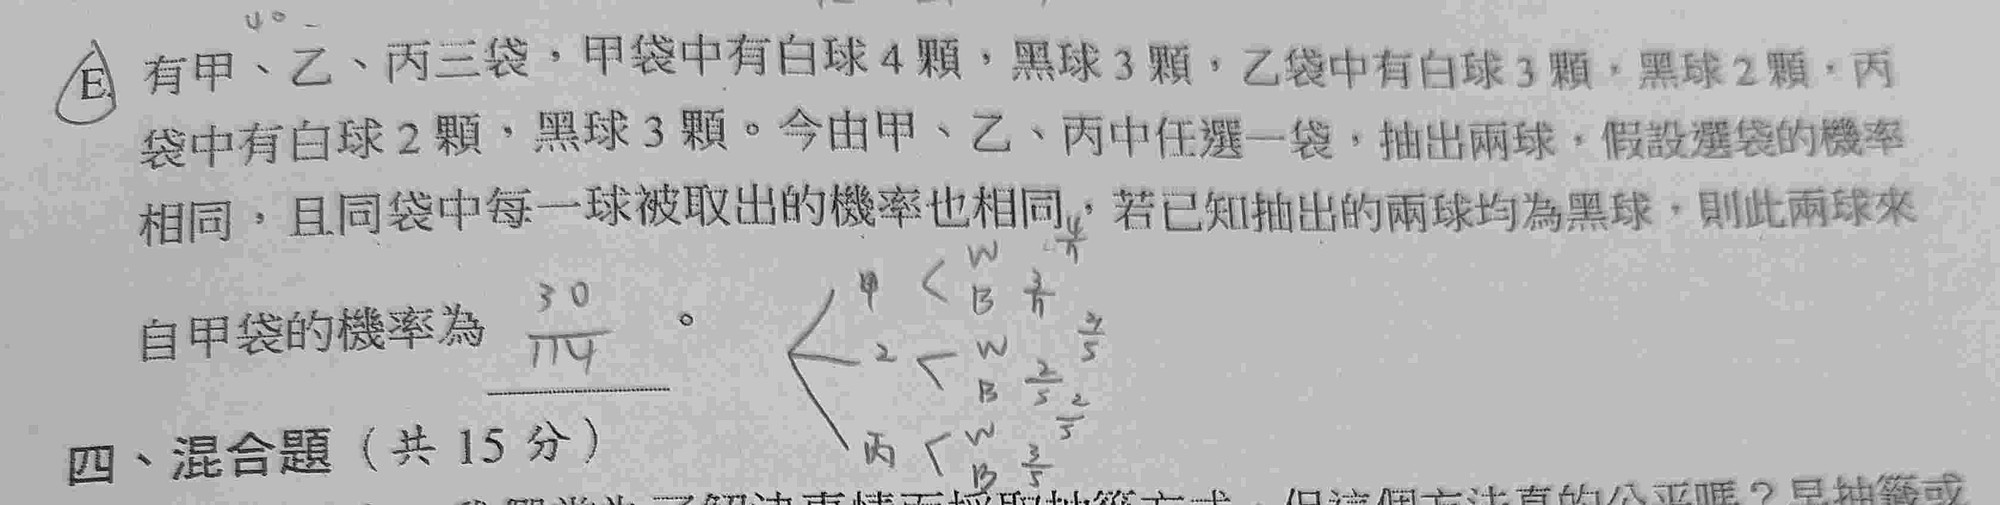 E. 有甲、乙、丙三袋，甲袋中有白球 4 顆，黑球 3 顆，乙袋中有白球 3 顆，黑球 2 顆，丙
袋中有白球 2 顆，黑球 3 顆。今由甲、乙、丙中任選一袋，抽出兩球，假設選袋的機率
相同，且同袋中每一球被取出的機率也相同，若已知抽出的兩球均為黑球，則此兩球來
自甲袋的機率為 30/114 。
甲 < W
B 3/7
乙 < W 3/5
B 2/5
丙 < W 2/5
B 3/5
四、混合題（共 15 分）